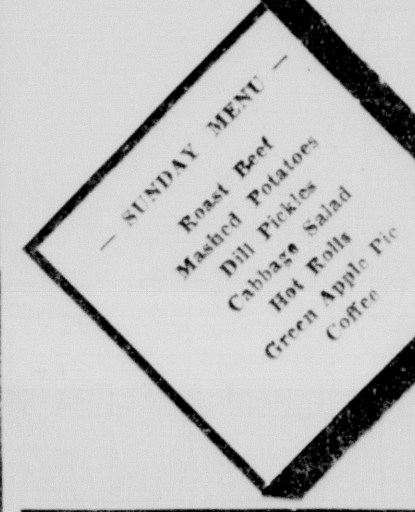 — SUNDAY MENU —
Roast Beef
Mashed Potatoes
Dill Pickles
Cabbage Salad
Hot Rolls
Green Apple Pie
Coffee